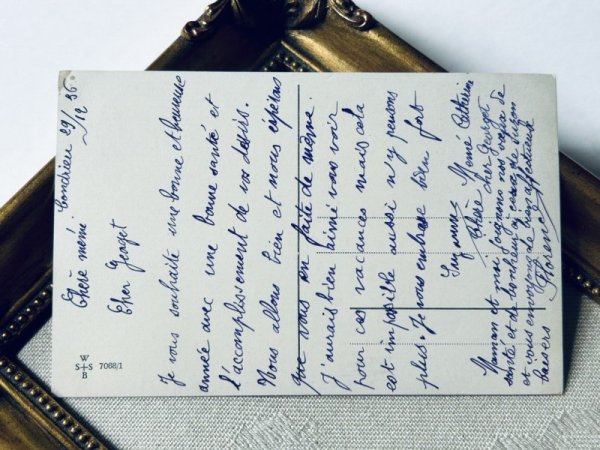 Condrieu 29/12 56
Chère mémé.
Cher Georget
Je vous souhaite une bonne et heureuse
année avec une bonne santé et
l'accomplissement de vos désirs.
Nous allons bien et nous espérons
que vous en faite de même.
J'aurais bien aimé vous voir
pour ces vacances mais cela
est impossible aussi n'y pensons
plus. Je vous embrasse bien fort
Suzanne
Chère Mémé Catherine
cher Georget
Maman et moi joignons nos vœux de
santé et de bonheur à ceux de Suzon
et vous envoyons de bien affectueux
baisers
W
S+S
B
7088/1